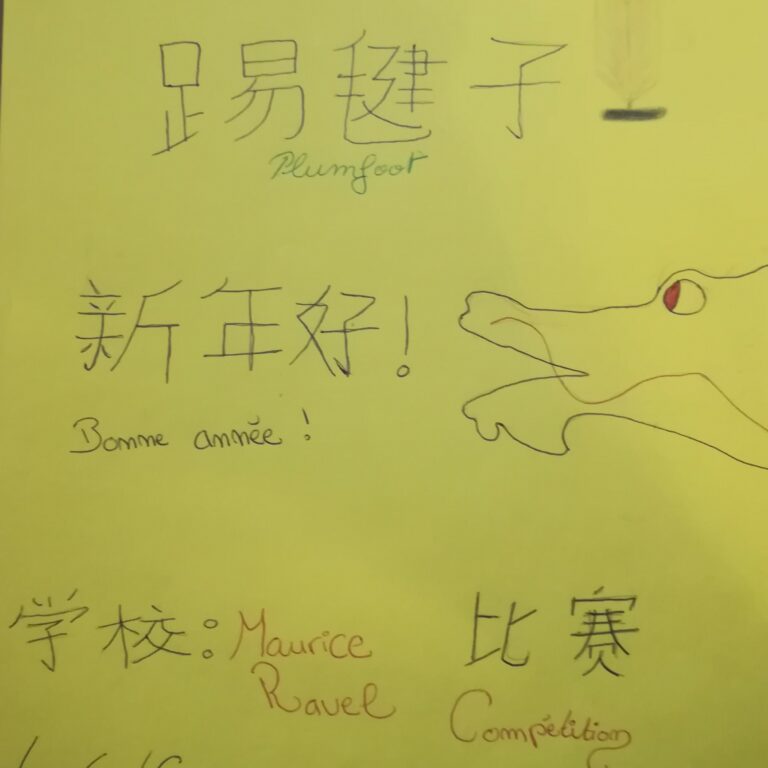 踢毽子
Plumfoot
新年好!
Bonne année !
学校: Maurice
Ravel
比赛
Compétition